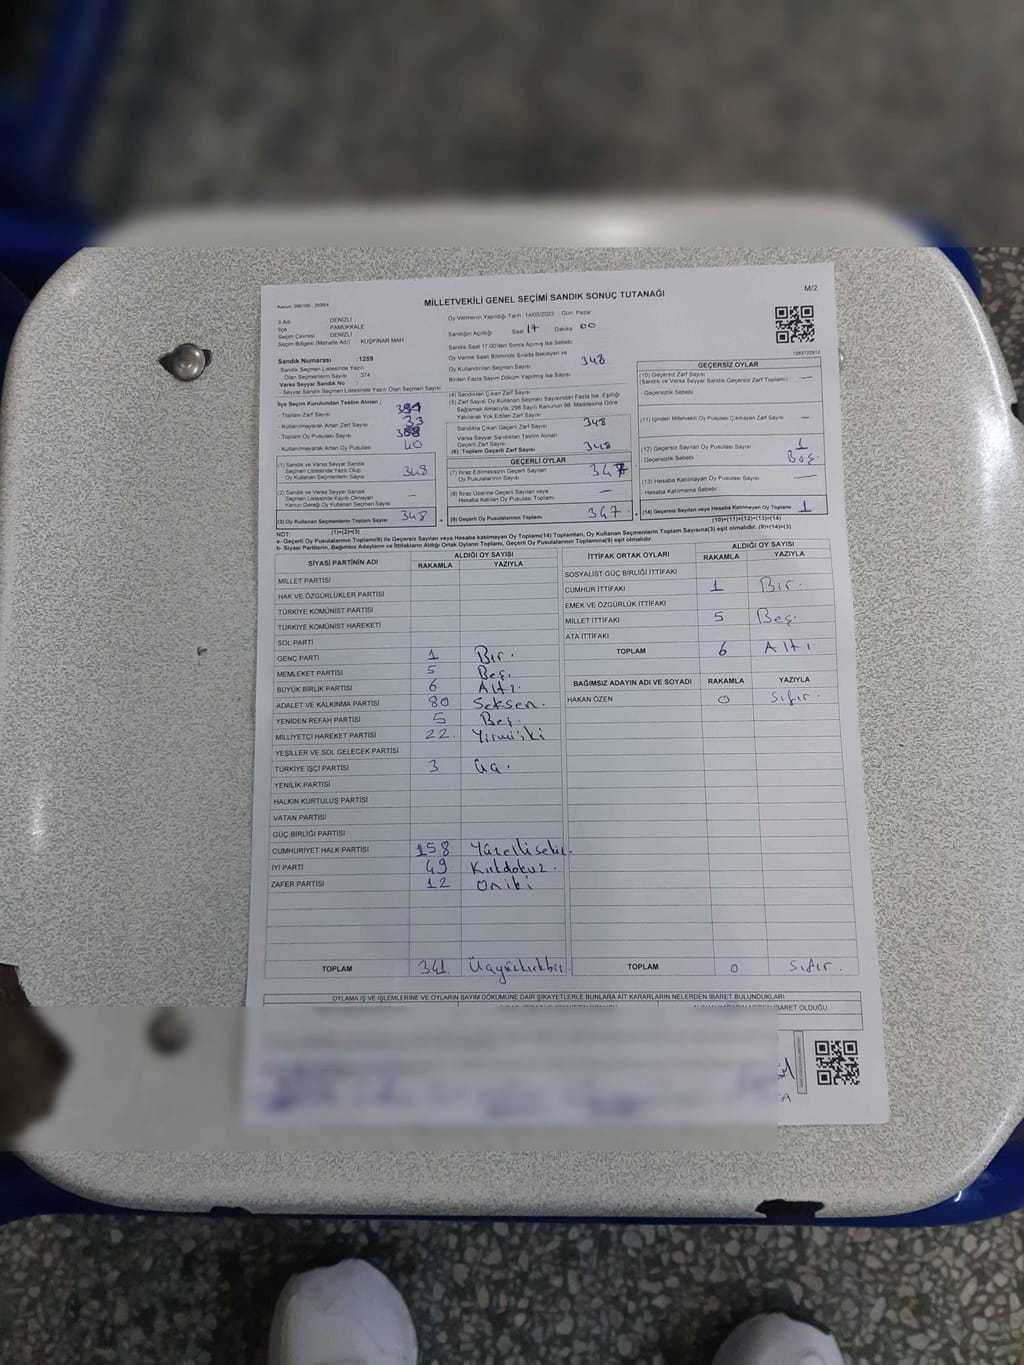 Kanun: 298/105 - 2839/4
MİLLETVEKİLİ GENEL SEÇİMİ SANDIK SONUÇ TUTANAĞI
M/2
İl Adı DENİZLİ
İlçe PAMUKKALE
Seçim Çevresi DENİZLİ
Seçim Bölgesi (Mahalle Adı) KUŞPINAR MAH.
Sandık Numarası :1259
Sandık Seçmen Listesinde Yazılı
Olan Seçmenlerin Sayısı 374
Varsa Seyyar Sandık No :
- Seyyar Sandık Seçmen Listesinde Yazılı Olan Seçmen Sayısı
Oy Vermenin Yapıldığı Tarih 14/05/2023 Gün: Pazar
Sandığın Açıldığı Saat 17 Dakika 00
Sandık Saat 17.00'den Sonra Açılmış İse Sebebi
Oy Verme Saati Bitiminde Sırada Bekleyen ve
Oy Kullandırılan Seçmen Sayısı 348
Birden Fazla Sayım Döküm Yapılmış İse Sayısı
İlçe Seçim Kurulundan Teslim Alınan ;
- Toplam Zarf Sayısı
- Kullanılmayarak Artan Zarf Sayısı 33
- Toplam Oy Pusulası Sayısı
- Kullanılmayarak Artan Oy Pusulası 40
(1) Sandık ve Varsa Seyyar Sandık
Seçmen Listesinde Yazılı Olup
Oy Kullanan Seçmenlerin Sayısı 348
(2) Sandık ve Varsa Seyyar Sandık
Seçmen Listesinde Kayıtlı Olmayan
Kanun Gereği Oy Kullanan Seçmen Sayısı —
(3) Oy Kullanan Seçmenlerin Toplam Sayısı 348 =
(1)+(2)=(3)
(4) Sandıktan Çıkan Zarf Sayısı
(5) Zarf Sayısı Oy Kullanan Seçmen Sayısından Fazla İse, Eşitliği
Sağlamak Amacıyla, 298 Sayılı Kanunun 98. Maddesine Göre
Yakılarak Yok Edilen Zarf Sayısı
Sandıkta Çıkan Geçerli Zarf Sayısı 348
Varsa Seyyar Sandıktan Teslim Alınan
Geçerli Zarf Sayısı
(6) Toplam Geçerli Zarf Sayısı 348
GEÇERLİ OYLAR
(7) İtiraz Edilmeksizin Geçerli Sayılan
Oy Pusulasının Sayısı 347
(8) İtiraz Üzerine Geçerli Sayılan veya
Hesaba Katılan Oy Pusulası Toplamı —
(9) Geçerli Oy Pusulalarının Toplamı 347 +
1083722912
GEÇERSİZ OYLAR
(10) Geçersiz Zarf Sayısı
(Sandık ve Varsa Seyyar Sandık Geçersiz Zarf Toplamı) —
- Geçersizlik Sebebi
(11) İçinden Milletvekili Oy Pusulası Çıkmayan Zarf Sayısı —
(12) Geçersiz Sayılan Oy Pusulası Sayısı 1
- Geçersizlik Sebebi Boş.
(13) Hesaba Katılmayan Oy Pusulası Sayısı —
- Hesaba Katılmama Sebebi :
(14) Geçersiz Sayılan veya Hesaba Katılmayan Oy Toplamı 1
(10)+(11)+(12)+(13)=(14)
NOT:
a- Geçerli Oy Pusulalarının Toplamı(9) ile Geçersiz Sayılan veya Hesaba katılmayan Oy Toplamı(14) Toplamları, Oy Kullanan Seçmenlerin Toplam Sayısına(3) eşit olmalıdır. (9)+(14)=(3)
b- Siyasi Partilerin, Bağımsız Adayların ve İttifakların Aldığı Ortak Oyların Toplamı, Geçerli Oy Pusulalarının Toplamına(9) eşit olmalıdır.
SİYASİ PARTİNİN ADI ALDIĞI OY SAYISI
RAKAMLA YAZIYLA
MİLLET PARTİSİ
HAK VE ÖZGÜRLÜKLER PARTİSİ
TÜRKİYE KOMÜNİST PARTİSİ
TÜRKİYE KOMÜNİST HAREKETİ
SOL PARTİ
GENÇ PARTİ 1 Bir.
MEMLEKET PARTİSİ 5 Beş.
BÜYÜK BİRLİK PARTİSİ 6 Altı.
ADALET VE KALKINMA PARTİSİ 80 Seksen.
YENİDEN REFAH PARTİSİ 5 Beş.
MİLLİYETÇİ HAREKET PARTİSİ 22. Yirmiiki
YEŞİLLER VE SOL GELECEK PARTİSİ
TÜRKİYE İŞÇİ PARTİSİ 3 Üç.
YENİLİK PARTİSİ
HALKIN KURTULUŞ PARTİSİ
VATAN PARTİSİ
GÜÇ BİRLİĞİ PARTİSİ
CUMHURİYET HALK PARTİSİ 158 Yüzellisekiz.
İYİ PARTİ 49 Kırkdokuz.
ZAFER PARTİSİ 12 Oniki
TOPLAM 341 Üçyüzkırkbir.
İTTİFAK ORTAK OYLARI ALDIĞI OY SAYISI
RAKAMLA YAZIYLA
SOSYALİST GÜÇ BİRLİĞİ İTTİFAKI
CUMHUR İTTİFAKI 1 Bir.
EMEK VE ÖZGÜRLÜK İTTİFAKI
MİLLET İTTİFAKI 5 Beş.
ATA İTTİFAKI
TOPLAM 6 Altı.
BAĞIMSIZ ADAYIN ADI VE SOYADI RAKAMLA YAZIYLA
HAKAN ÖZEN 0 Sıfır.
TOPLAM 0 Sıfır.
OYLAMA İŞ VE İŞLEMLERİNE VE OYLARIN SAYIM DÖKÜMÜNE DAİR ŞİKAYETLERLE BUNLARA AİT KARARLARIN NELERDEN İBARET BULUNDUKLARI